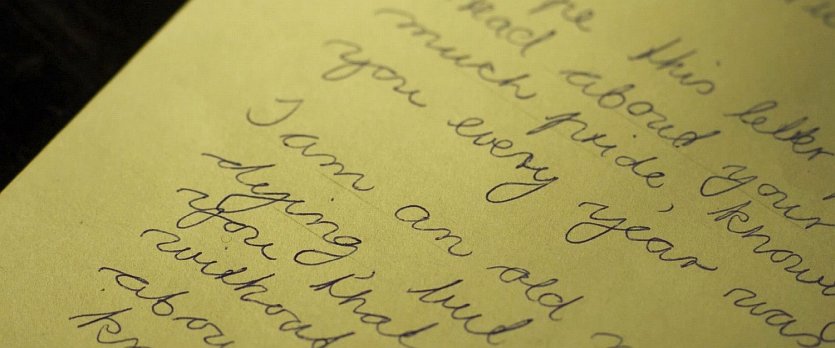 pe this letter
read about your
much pride, knowi
you every year was
I am an old
dying, but
you that
without
abou
kn